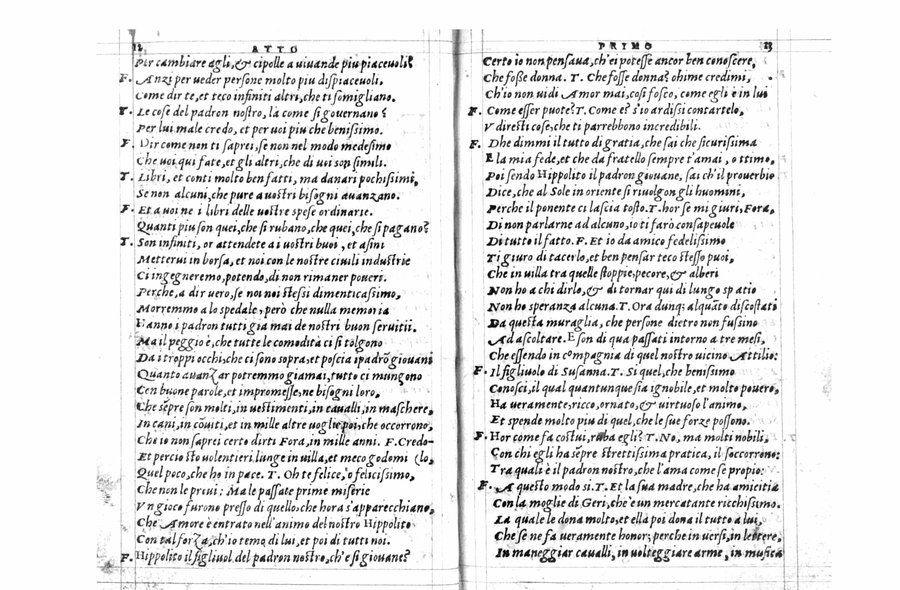 12 ATTO
Per cambiare agli, & cipolle a viuande piu piaceuoli?
F. Anzi per ueder persone molto piu dispiaceuoli,
Come dir te, et teco infiniti altri, che ti somigliano.
T. Le cose del padron nostro, la come si gouernano?
Per lui male credo, et per uoi piu che benissimo.
F. Dir come non ti saprei, se non nel modo medesimo
Che uoi qui fate, et gli altri, che di uoi son simili.
T. Libri, et conti molto ben fatti, ma danari pochissimi,
Se non alcuni, che pure a uostri bisogni auanzano.
F. Et a uoi ne i libri delle uostre spese ordinarie.
Quanti piu son quei, che si rubano, che quei, che si pagano?
T. Son infiniti, or attendete ai uostri buoi, et asini
Metterui in borsa, et noi con le nostre ciuili industrie
Ci ingegneremo, potendo, di non rimaner poueri.
Perche, a dir uero, se noi noi stessi dimenticassimo,
Morremmo a lo spedale, però che nulla memoria
Hanno i padron tutti gia mai de nostri buon seruitii.
Ma il peggio è, che tutte le comodità ci si tolgono
Da i troppi occhi, che ci sono sopra, et poscia i padrō giouani
Quanto auanzar potremmo giamai, tutto ci mungono
Con buone parole, et impromesse, ne bisogni loro,
Che sēpre son molti, in uestimenti, in caualli, in maschere,
In cani, in conuiti, et in mille altre uoglie poi, che occorrono,
Che io non saprei certo dirti Fora, in mille anni. F. Credo-
Et percio sto uolentieri lunge in uilla, et meco godomi (lo,
Quel poco, che ho in pace. T. Oh te felice, o felicissimo,
Che non le prius: Ma le passate prime miserie
Vn gioco furono presso di quello, che hora s'apparecchiano,
Che Amore è entrato nell'animo del nostro Hippolito
Con tal forza, ch'io temo di lui, et poi di tutti noi.
F. Hippolito il figliuol del padron nostro, ch'e si giouane?
PRIMO 13
Certo io non pensaua, ch'ei potesse ancor ben conoscere,
Che fosse donna. T. Che fosse donna? ohime credimi,
Ch'io non uidi Amor mai, così fosco, come egli è in lui
F. Come esser puote? T. Come e? s'io ardissi contartelo,
V diresti cose, che ti parrebbono incredibili.
F. Dhe dimmi il tutto di gratia, che sai che sicurissima
E la mia fede, et che da fratello sempre t'amai, o ttimo,
Poi sendo Hippolito il padron giouane, sai ch'il prouerbio
Dice, che al Sole in oriente si riuolgon gli huomini,
Perche il ponente ci lascia tosto. T. hor se mi giuri, Fora,
Di non parlarne ad alcuno, io ti farò consapeuole
Di tutto il fatto. F. Et io da amico fedelissimo
Ti giuro di tacerlo, et ben pensar teco stesso puoi,
Che in uilla tra quelle stoppie, pecore, & alberi
Non ho a chi dirlo, & di tornar qui di lungo spatio
Non ho speranza alcuna. T. Ora dunq; alquāto discostati
Da questa muraglia, che persone dietro non fussino
Ad ascoltare. E son di qua passati intorno a tre mesi,
Che essendo in compagnia di quel nostro uicino Attilio:
F. Il figliuolo di Susanna. T. Si quel, che benissimo
Conosci, il qual quantunque sia ignobile, et molto pouero,
Ha ueramente, ricco, ornato, & virtuoso l'animo,
Et spende molto piu di quel, che le sue forze possono.
F. Hor come fa costui, ruba egli? T. No, ma molti nobili,
Con chi egli ha sēpre strettissima pratica, il soccorrono:
Tra quali è il padron nostro, che l'ama come se propio:
F. A questo modo si. T. Et la sua madre, che ha amicitia
Con la moglie di Geri, che'è un mercatante ricchissimo.
La quale le dona molto, et ella poi dona il tutto a lui,
Che se ne fa ueramente honor, perche in uersi, in lettere,
In maneggiar caualli, in uolteggiare arme, in musica